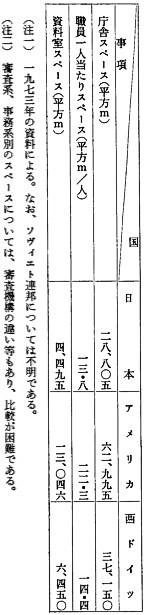 事項 国 日本 アメリカ 西ドイツ
庁舎スペース(平方m) 二八、八〇五 六二、九九五 三七、一五〇
職員一人当たりスペース(平方m/人) 一三・八 二二・三 一四・四
資料室スペース(平方m) 四、四九五 一三、〇四六 六、四五〇
(注一) 一九七三年の資料による。なお、ソヴィエト連邦については不明である。
(注二) 審査系、事務系別のスペースについては、審査機構の違い等もあり、比較が困難である。